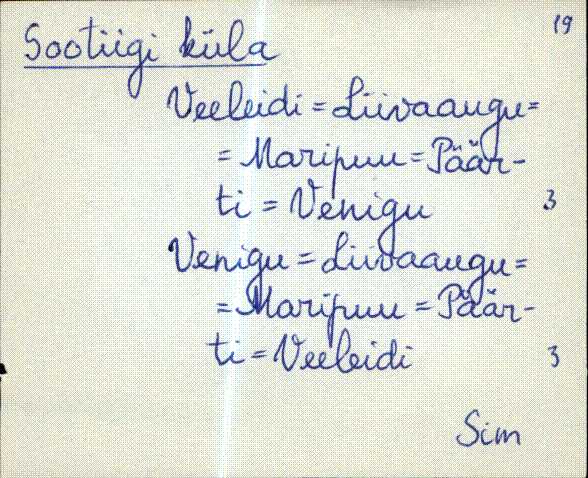 19
Sootiigi küla
Veeleidi = Liivaaugu =
= Maripuu = Päär-
ti = Venigu 3
Venigu = Liivaaugu =
= Maripuu = Päär-
ti = Veeleidi 3
Sim